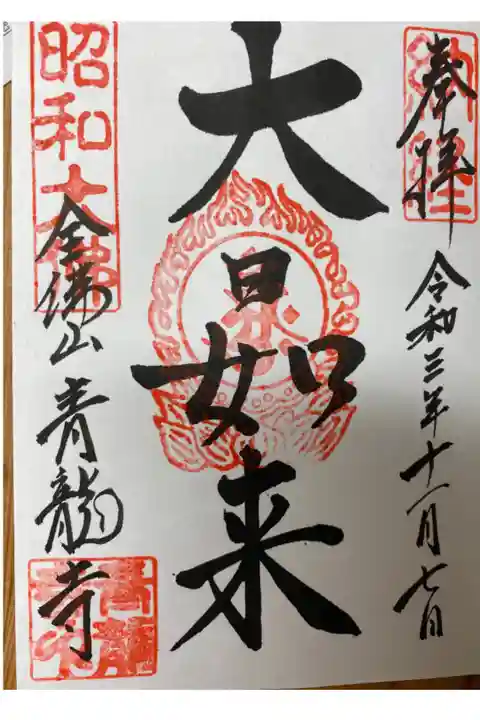 奉拝
令和三年十一月七日
大日如来
昭和大佛
全佛山青龍寺